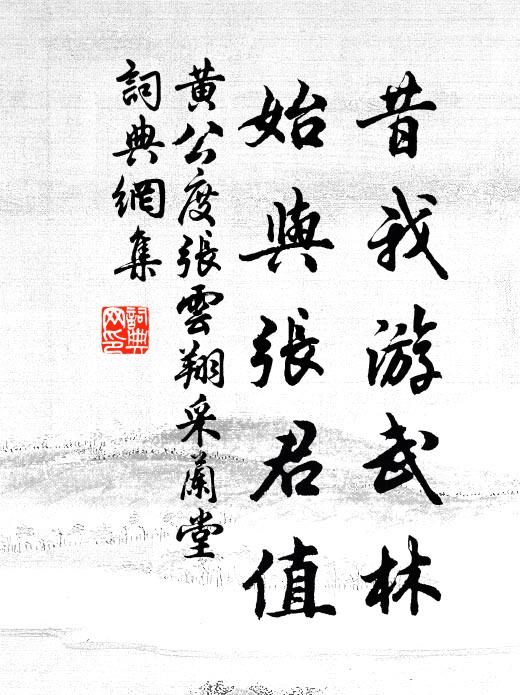 昔我游武林
始與張君值
黃公度張雲翔采蘭堂
詞典網集
詞典网印